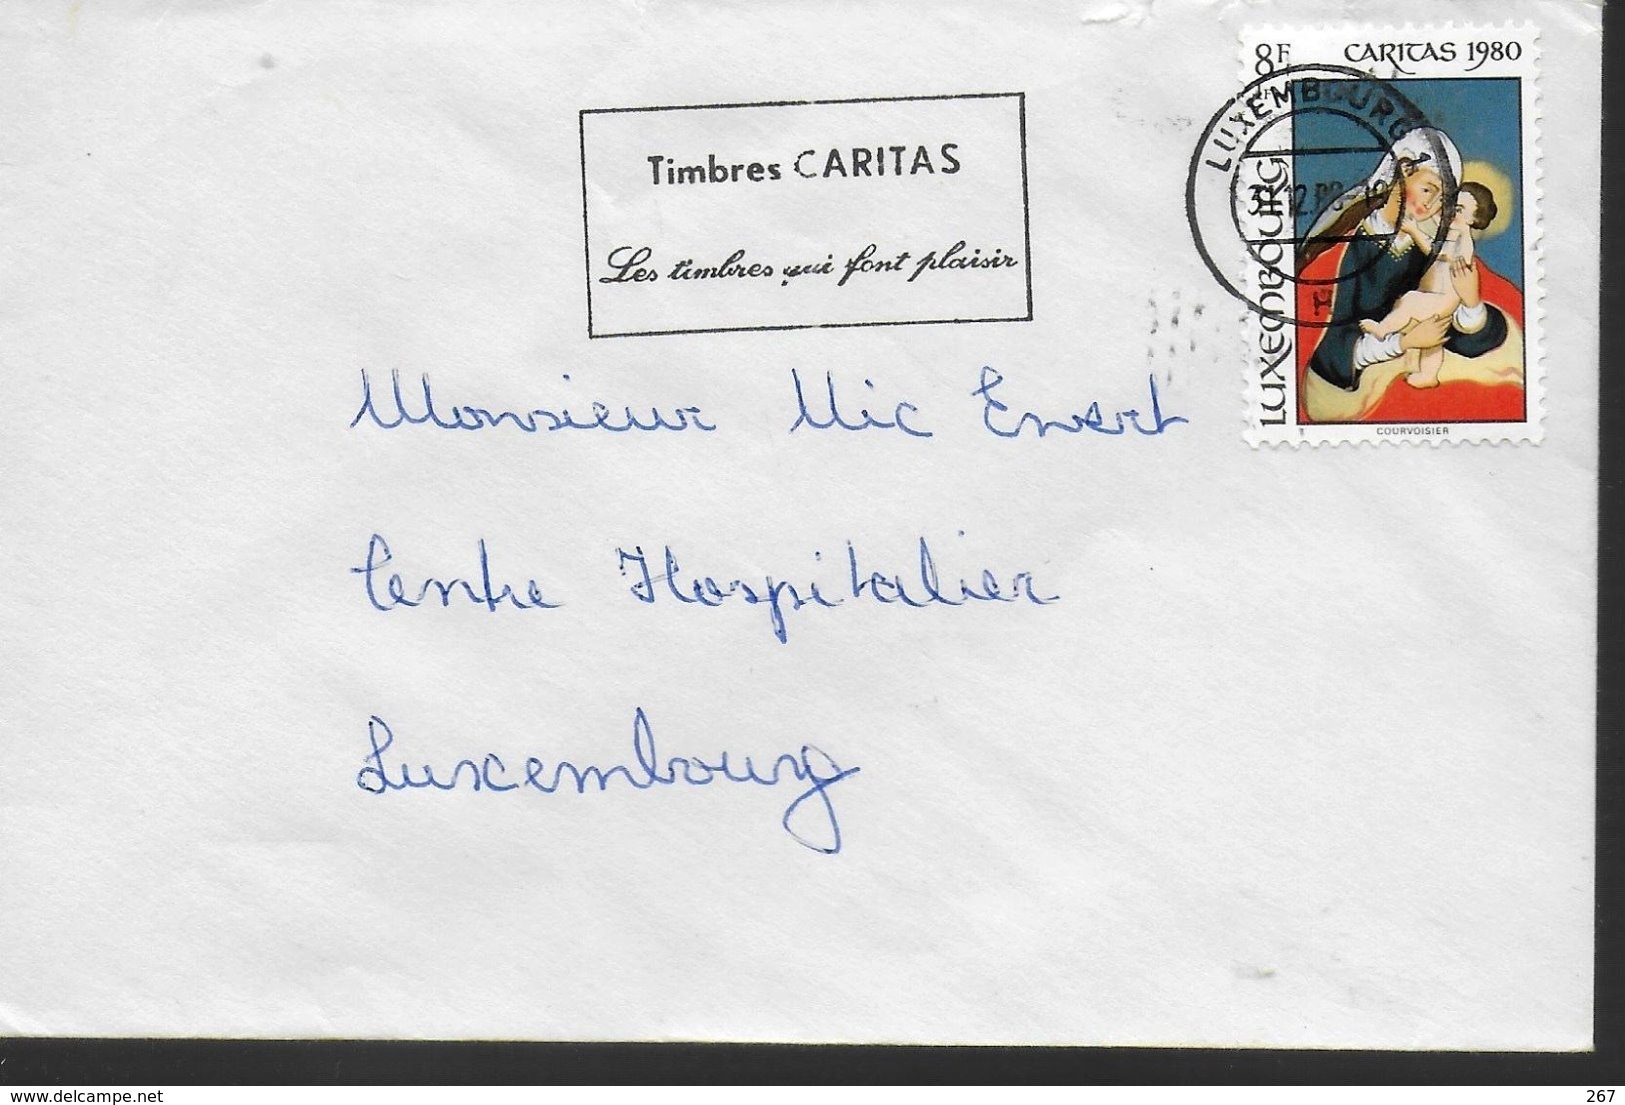 8F CARITAS 1980
LUXEMBOURG
LUXEMBOURG 1
Timbres CARITAS
Les timbres qui font plaisir
COURVOISIER
Monsieur Mic Enert
Centre Hospitalier
Luxembourg
delcampe.net
267